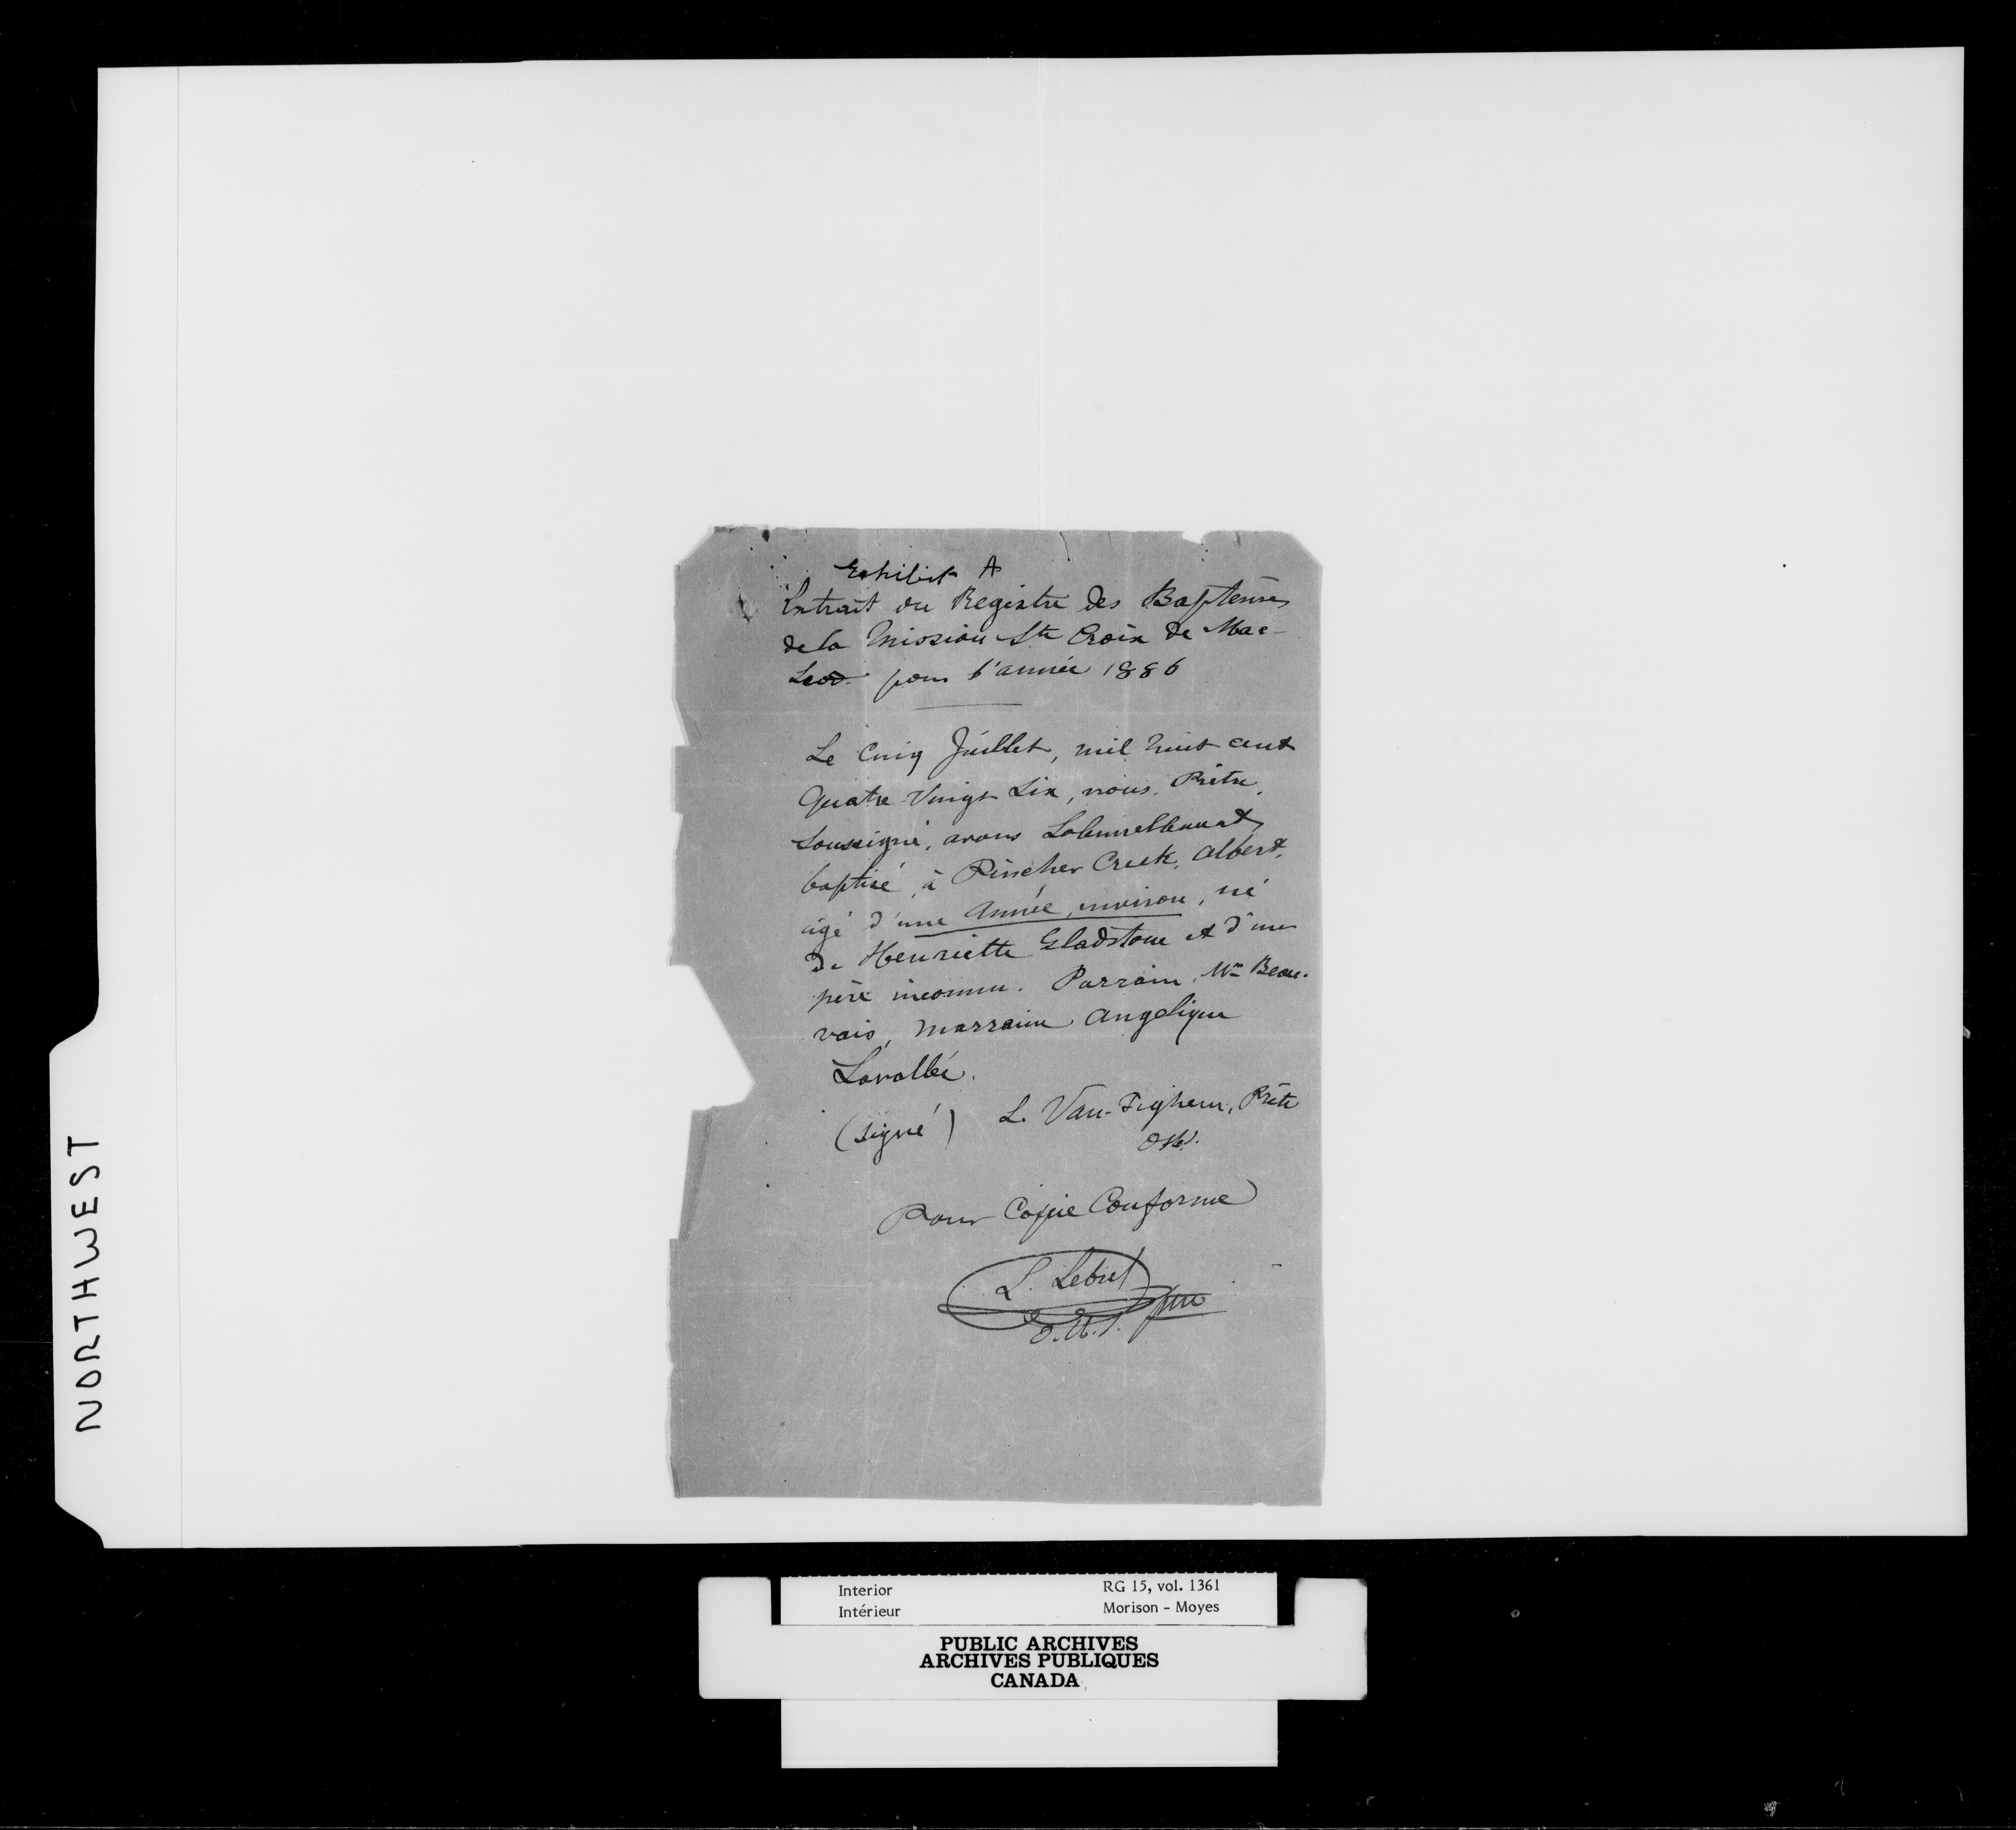 Exhibit A
Extrait du Registre des Baptêmes
de la Mission Ste Croix de Mac-
Leod pour l'année 1886
Le Cinq Juillet, mil huit cent
Quatre Vingt Six, nous, Prêtre
soussigné, avons Solennellement
baptisé, à Pincher Creek, Albert,
âgé d'une Année, environ, né
de Henriette Gladstone et d'un
père inconnu. Parrain, Wm Beau-
vais, Marraine Angelique
Lavallée.
(signé) L. Van-Tighem, Prêtre
OMI.
Pour Copie Conforme
L. Lebret
O.M.I. ptre
NORTHWEST
Interior RG 15, vol. 1361
Intérieur Morison - Moyes
PUBLIC ARCHIVES
ARCHIVES PUBLIQUES
CANADA